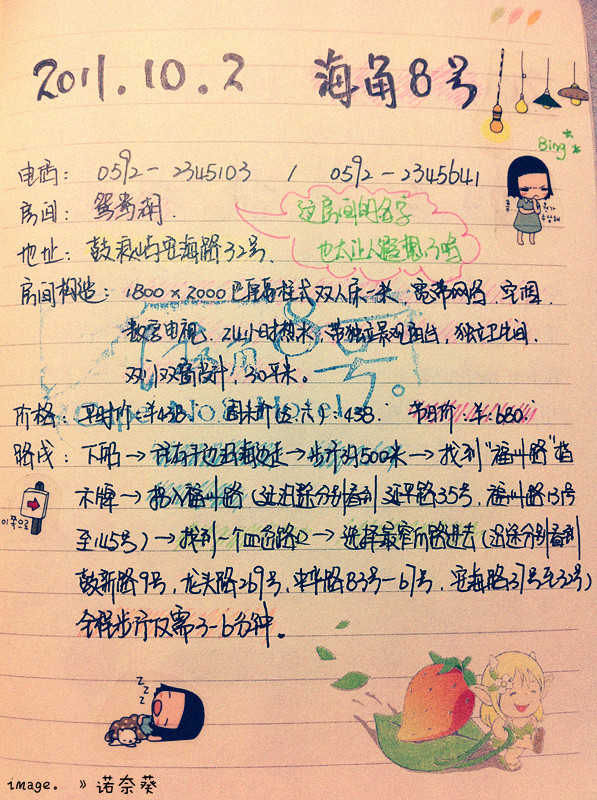 2011.10.2 海角8号
Bing
电码: 0592-2345103 / 0592-2345641
房间: 鸳鸯湖.
这房间的名字
也太让人遐想了吧
地址: 鼓浪屿安海路32号.
房间构造: 1800×2000 双人床一张, 宽带网络, 空调
数字电视, 24小时热水, 带独立景观阳台, 独立卫生间.
双门双窗设计, 30平米。
价格: 平时价:¥438. 周末价(五、六):438. 节日价:¥:680.
路线: 下船→往右手边沿海边走→步行约500米→找到"福州路"指
示牌→拐入福州路(这沿途分别看到延平路35号, 福州路131号
至145号)→找到一个四岔路口→选择最窄的路进去(沿途分别看到
鼓新路9号, 龙头路269号, 中华路83号-67号, 安海路37号至32号)
全程步行仅需3-6分钟。
이쪽으로
z z z
image. 》诺奈葵